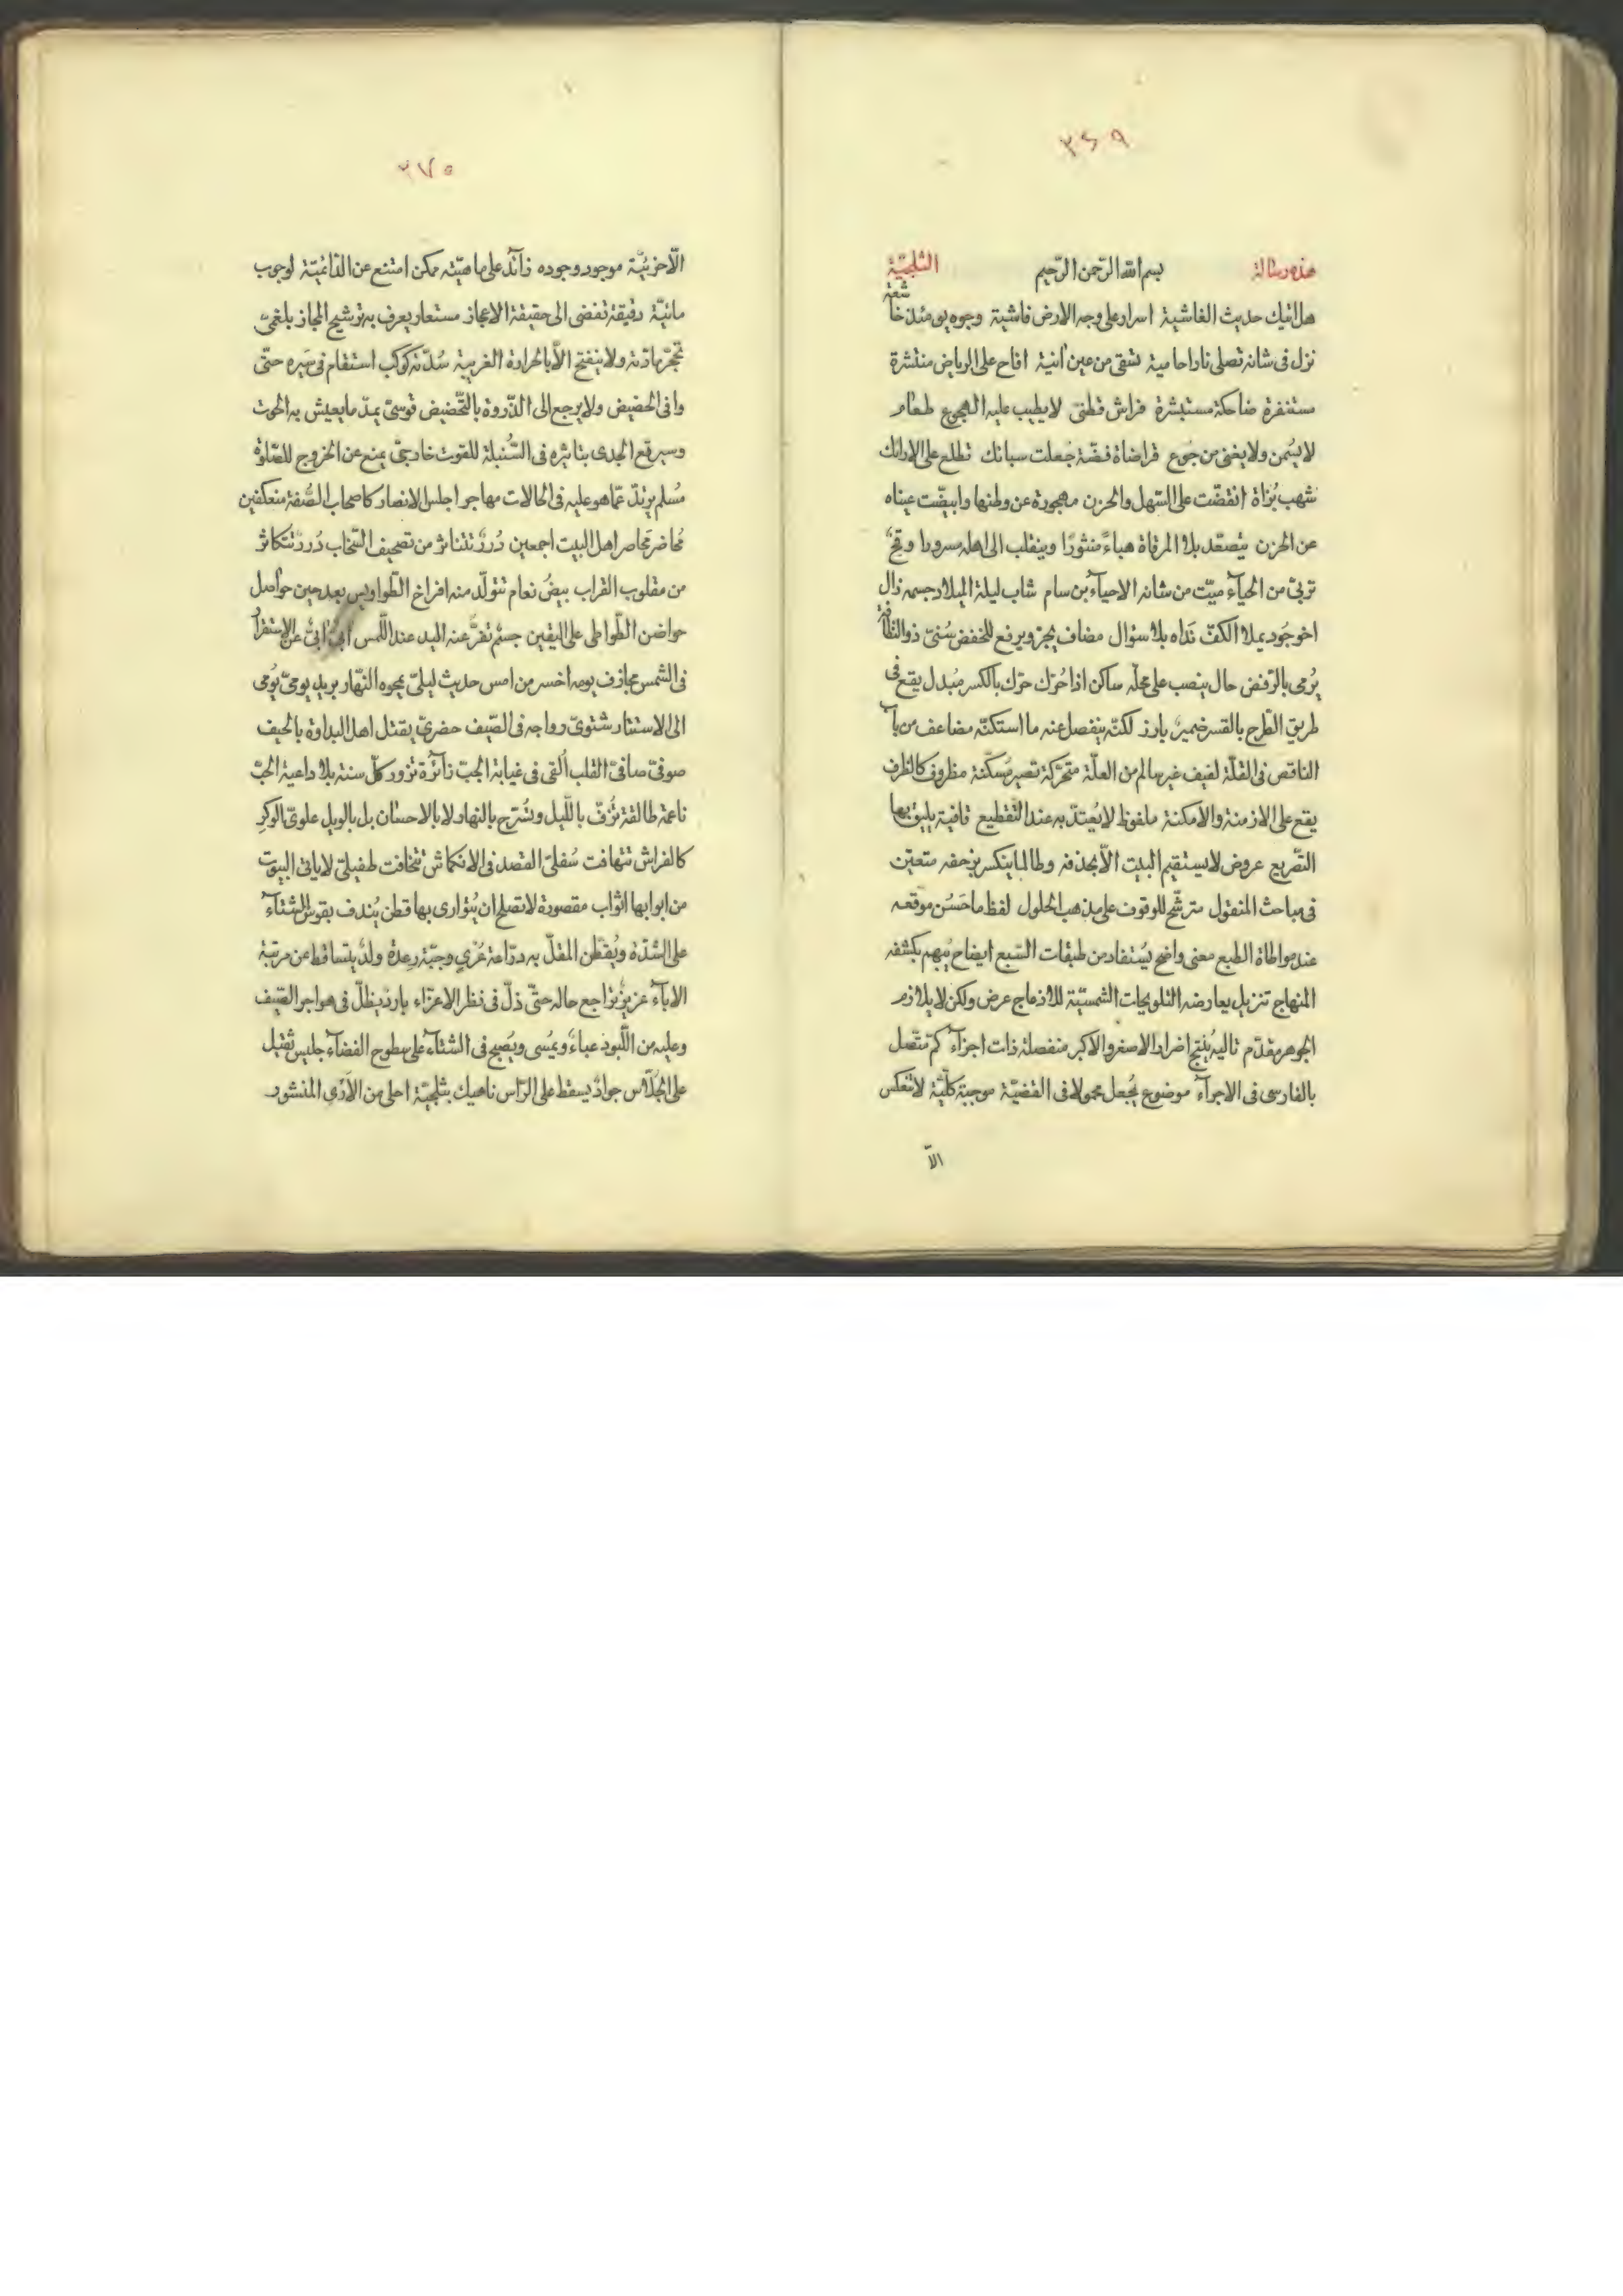 ٣٤٩
هذه رسالة بسم الله الرحمن الرحيم الثلجيّة
هل اتيك حديث الغاشية اسرار على وجه الارض فاشية وجوه يومئذ خاشعة
نزل فى شانه تصلى نارا حامية تسقى من عين آنية اقاح على الرياض منتشرة
مستنفرة ضاحكة مستبشرة فراش قطنى لا يطيب عليه الهجوع طعام
لا يُسمن ولا يغنى من جُوع قراضاة فضّة جُعلت سبائك تطلع على الارائك
شهب بُزاة انقضّت على السّهل والحزن مهجورة عن وطنها وابيضّت عيناه
عن الحزن يتصعّد بلا المرقاة هباءً منثورًا وينقلب الى اهله مسرورا وقحٌ
تربّى من الحيآء ميّت من شانه الاحيآء بن سام شاب ليلة الميلاد جسمه زال
اخو جُود يملا الكفّ نَداه بلا سؤال مضاف يجرّ ويرفع للخفض سُنّى ذو النظافة
يُرمى بالرّفض حال ينصب على محلّه ساكن اذا حُرّك حرّك بالكسر مُبدل يقع فى
طريق الطّرح بالقسر ضميرٌ بارز لكنّه ينفصل عنه ما استكنّه مضاعف من باب
الناقص فى القلّة لفيف غير سالم من العلّة متحرّكة تصير مُسكّنة مظروف كالظرف
يقع على الازمنة والامكنة ملفوظ لا يُعتدّ به عند التّقطيع قافية يليق بها
التّصريع عروض لا يستقيم البيت الّا بحذفه وطالما ينكسر بزحفه متعيّن
فى مباحث المنقول مترشّح للوقوف على مذهب الحلول لفظ ما حَسُن موقعه
عند مواطاة الطبع معنى واضح يُستفاد من طبقات السّبع ايضاح مُبهم يكشفه
المنهاج تنزيل يعارضه التلويحات الشمسيّة للاندماج عرض ولكن لا يلازم
الجوهر مقدّم تاليه يُنتج اضرار الاصغر والاكبر منفصلة ذات اجزآء كمّ متّصل
بالفارسى فى الاجرآء موضوع يُجعل محمولا فى القضيّة موجبة كلّيّة لا تنعكس
الّا
٣٧٥
الّا جزئيّة موجود وجوده زآئد على ماهيّته ممكن امتنع عن الدّائميّة لوجوب
مائيّة دقيقة تفضى الى حقيقة الاعجاز مستعار يعرف به ترشيح المجاز بلغمىّ
تحجّر مادّته ولا ينفتح الّا بالحرارة الغريبة سُدّته كوكب استقام فى سَيره حتّى
وافى الحضيض ولا يرجع الى الذّروة بالتّحضيض قوسىّ يمدّ ما يعيش به الحوت
وسيرقع الجدى بتاثيره فى السّنبلة للقوت خارجىّ يمنع عن الخروج للصّلوة
مُسلم يرتدّ عمّا هو عليه فى الحالات مهاجر اجلس الانصار كاصحاب الصُّفة منعكفين
مُحاضر محاصر اهل البيت اجمعين دُررٌ تتناثر من تصحيف السّحاب دُررٌ تتكاثر
من مقلوب القراب بيضُ نعام تتولّد منه افراخ الطّواويس بعد حين حواصل
حواضن الطّواطى على اليقين جسم تفرّ عنه اليد عند اللّمس ابىّ ابىّ عن الاستقرآء
فى الشمس مجازف يومه اخسر من امس حديث ليلىّ يمحوه النّهار بريد يومىّ يُومى
الى الاستتار شتوىّ رواجه فى الصّيف حضرىّ يقتل اهل البداوة بالحيف
صوفىّ صافىّ القلب اُلقى فى غيابة الجبّ زآئرة تزور كلّ سنة بلا داعية الحبّ
ناعمة طالقة تُزفّ باللّيل وتُسَرّح بالنهار لا بالاحسان بل بالويل علوىّ الوكرِ
كالفراش تتهافت سُفلىّ القصد فى الانكماش تتخافت طفيلىّ لا ياتى البيوت
من ابوابها اثواب مقصورة لا تصلح ان يُتوارى بها قطن يُندف بقوس الشتآء
على الشدّة ويُقطّن المقلّ به درّاعة عُرْيٍ وجبّة رعدة ولدٌ يتساقط عن مرتبة
الابآء عزيزٌ تراجع حاله حتّى ذلّ فى نظر الاعزّاء باردٌ يظلّ فى هواجر الصّيف
وعليه من اللّبود عباءٌ ويُمسى ويُصبح فى الشتآء على سطوح الفضآء جليس ثقيل
على الجُلّاس جوادٌ يسقط على الرّاس ناهيك بثلجيّة احلى من الاَزْىِ المنشور